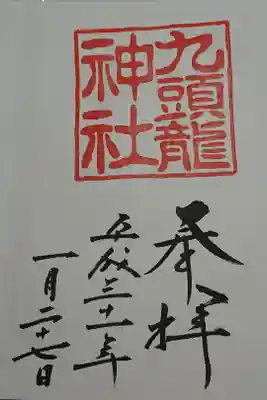 九頭龍
神社
奉拝
平成三十一年
一月二十七日